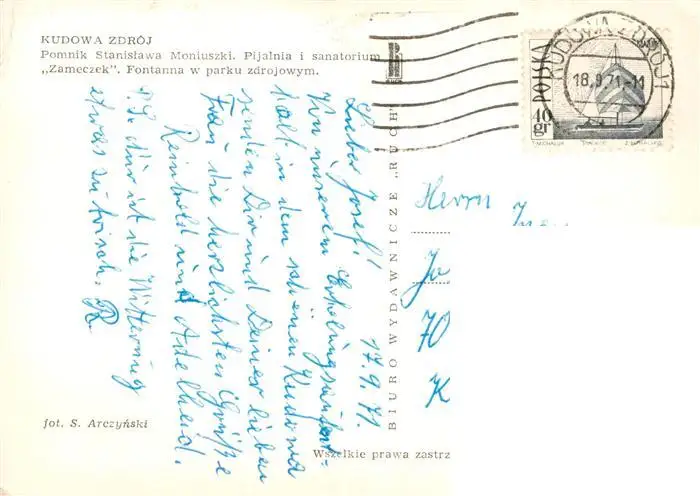 KUDOWA ZDRÓJ
Pomnik Stanisława Moniuszki. Pijalnia i sanatorium
„Zameczek". Fontanna w parku zdrojowym.
17.9.71.
Lieber Josef!
Von unserem Erholungsaufent-
halt in dem schönen Kudowa
senden Dir und Deiner lieben
Frau die herzlichsten Grüße
Reinhold und Adelheid.
P.S. Nur ist die Witterung
etwas zu frisch. R.
fot. S. Arczyński
BIURO WYDAWNICZE „RUCH"
Wszelkie prawa zastrz
KUDOWA ZDRÓJ 1
18.9.71-11
POLSKA
40 gr
Herrn
Jo
70
K